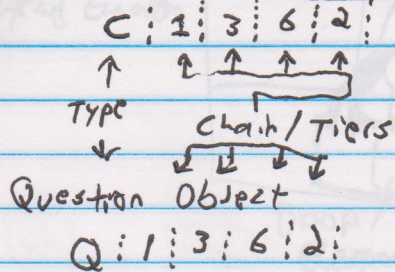 C ¦ 1 ¦ 3 ¦ 6 ¦ 2 ¦
Type
Chain / Tiers
Question Object
Q ¦ 1 ¦ 3 ¦ 6 ¦ 2 ¦